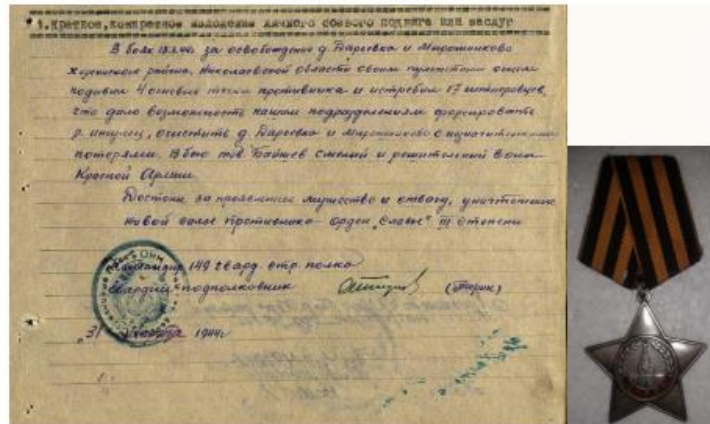 1. Краткое, конкретное изложение личного боевого подвига или заслуг
В боях за освобождение д. Дарьевка и Мирошниково
района, Николаевской области своим пулеметным огнем
подавил 4 огневые точки противника и истребил 17 гитлеровцев,
что дало возможность нашим подразделениям форсировать
р. Ингулец, очистить д. Дарьевка и Мирошниково с незначительными
потерями. В бою тов. Байшев смелый и решительный воин
Красной Армии.
Достоин за проявленное мужество и отвагу, уничтожение
живой силы противника - орден „Славы" III степени
Командир 149 гвард. стр. полка
гвардии подполковник
„31" марта 1944г.